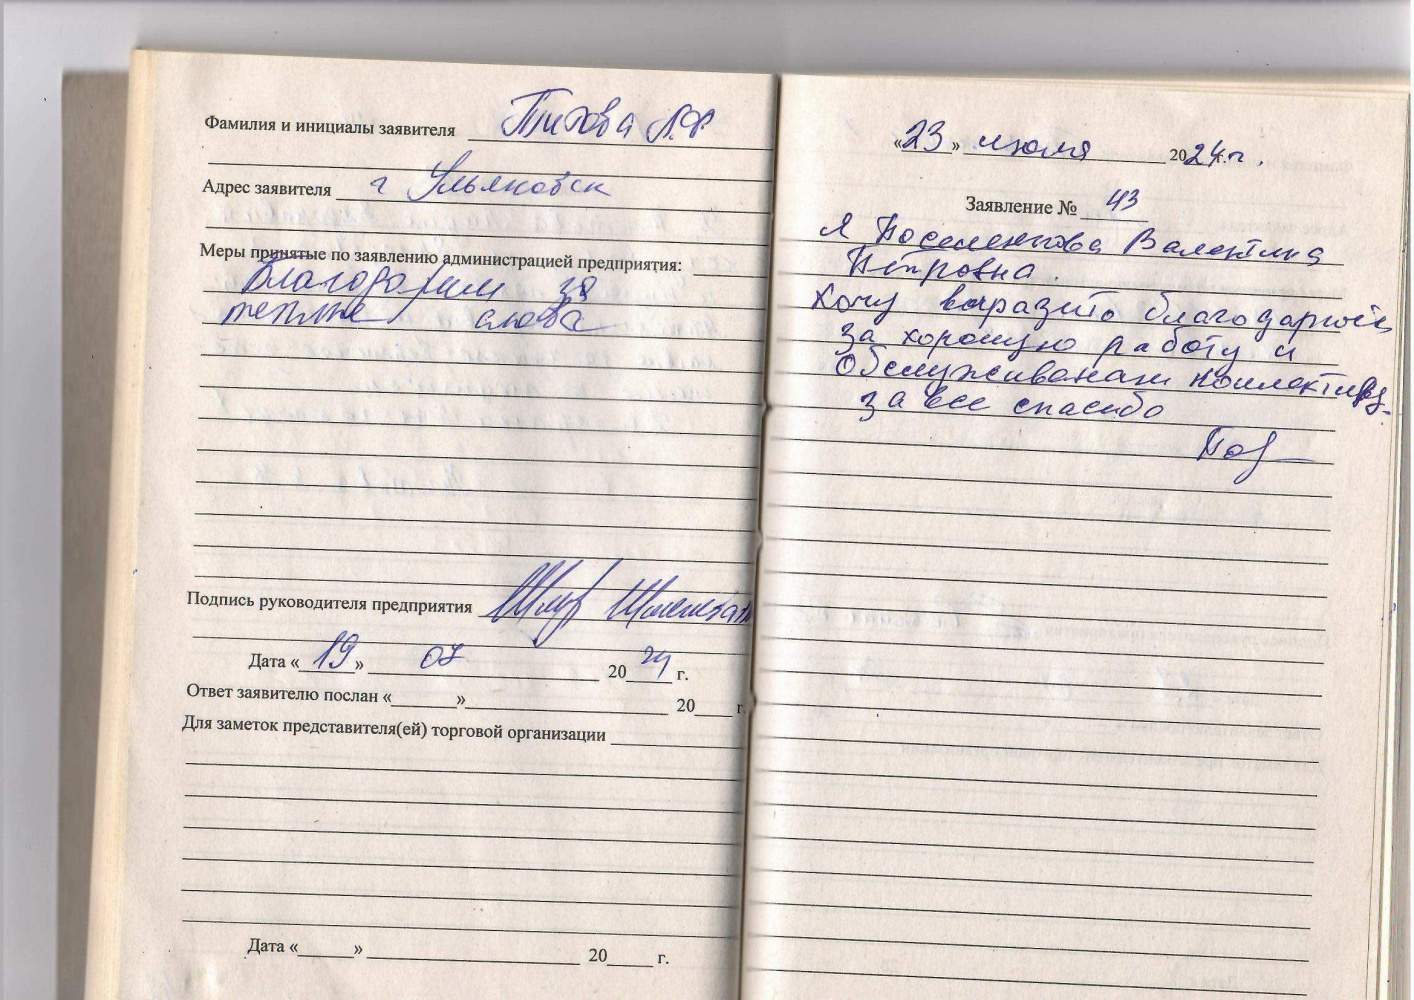 Фамилия и инициалы заявителя Титова Л.Ф.
Адрес заявителя г Ульяновск
Меры принятые по заявлению администрацией предприятия:
Благодарим за
теплые слова
Подпись руководителя предприятия
Дата «19» 07 2024 г.
Ответ заявителю послан «» 20 г.
Для заметок представителя(ей) торговой организации
Дата «» 20 г.
«23» июля 2024 г.
Заявление № 43
Я Поселенова Валентина
Петровна.
Хочу выразить благодарность
за хорошую работу и
обслуживании коллективу.
за все спасибо